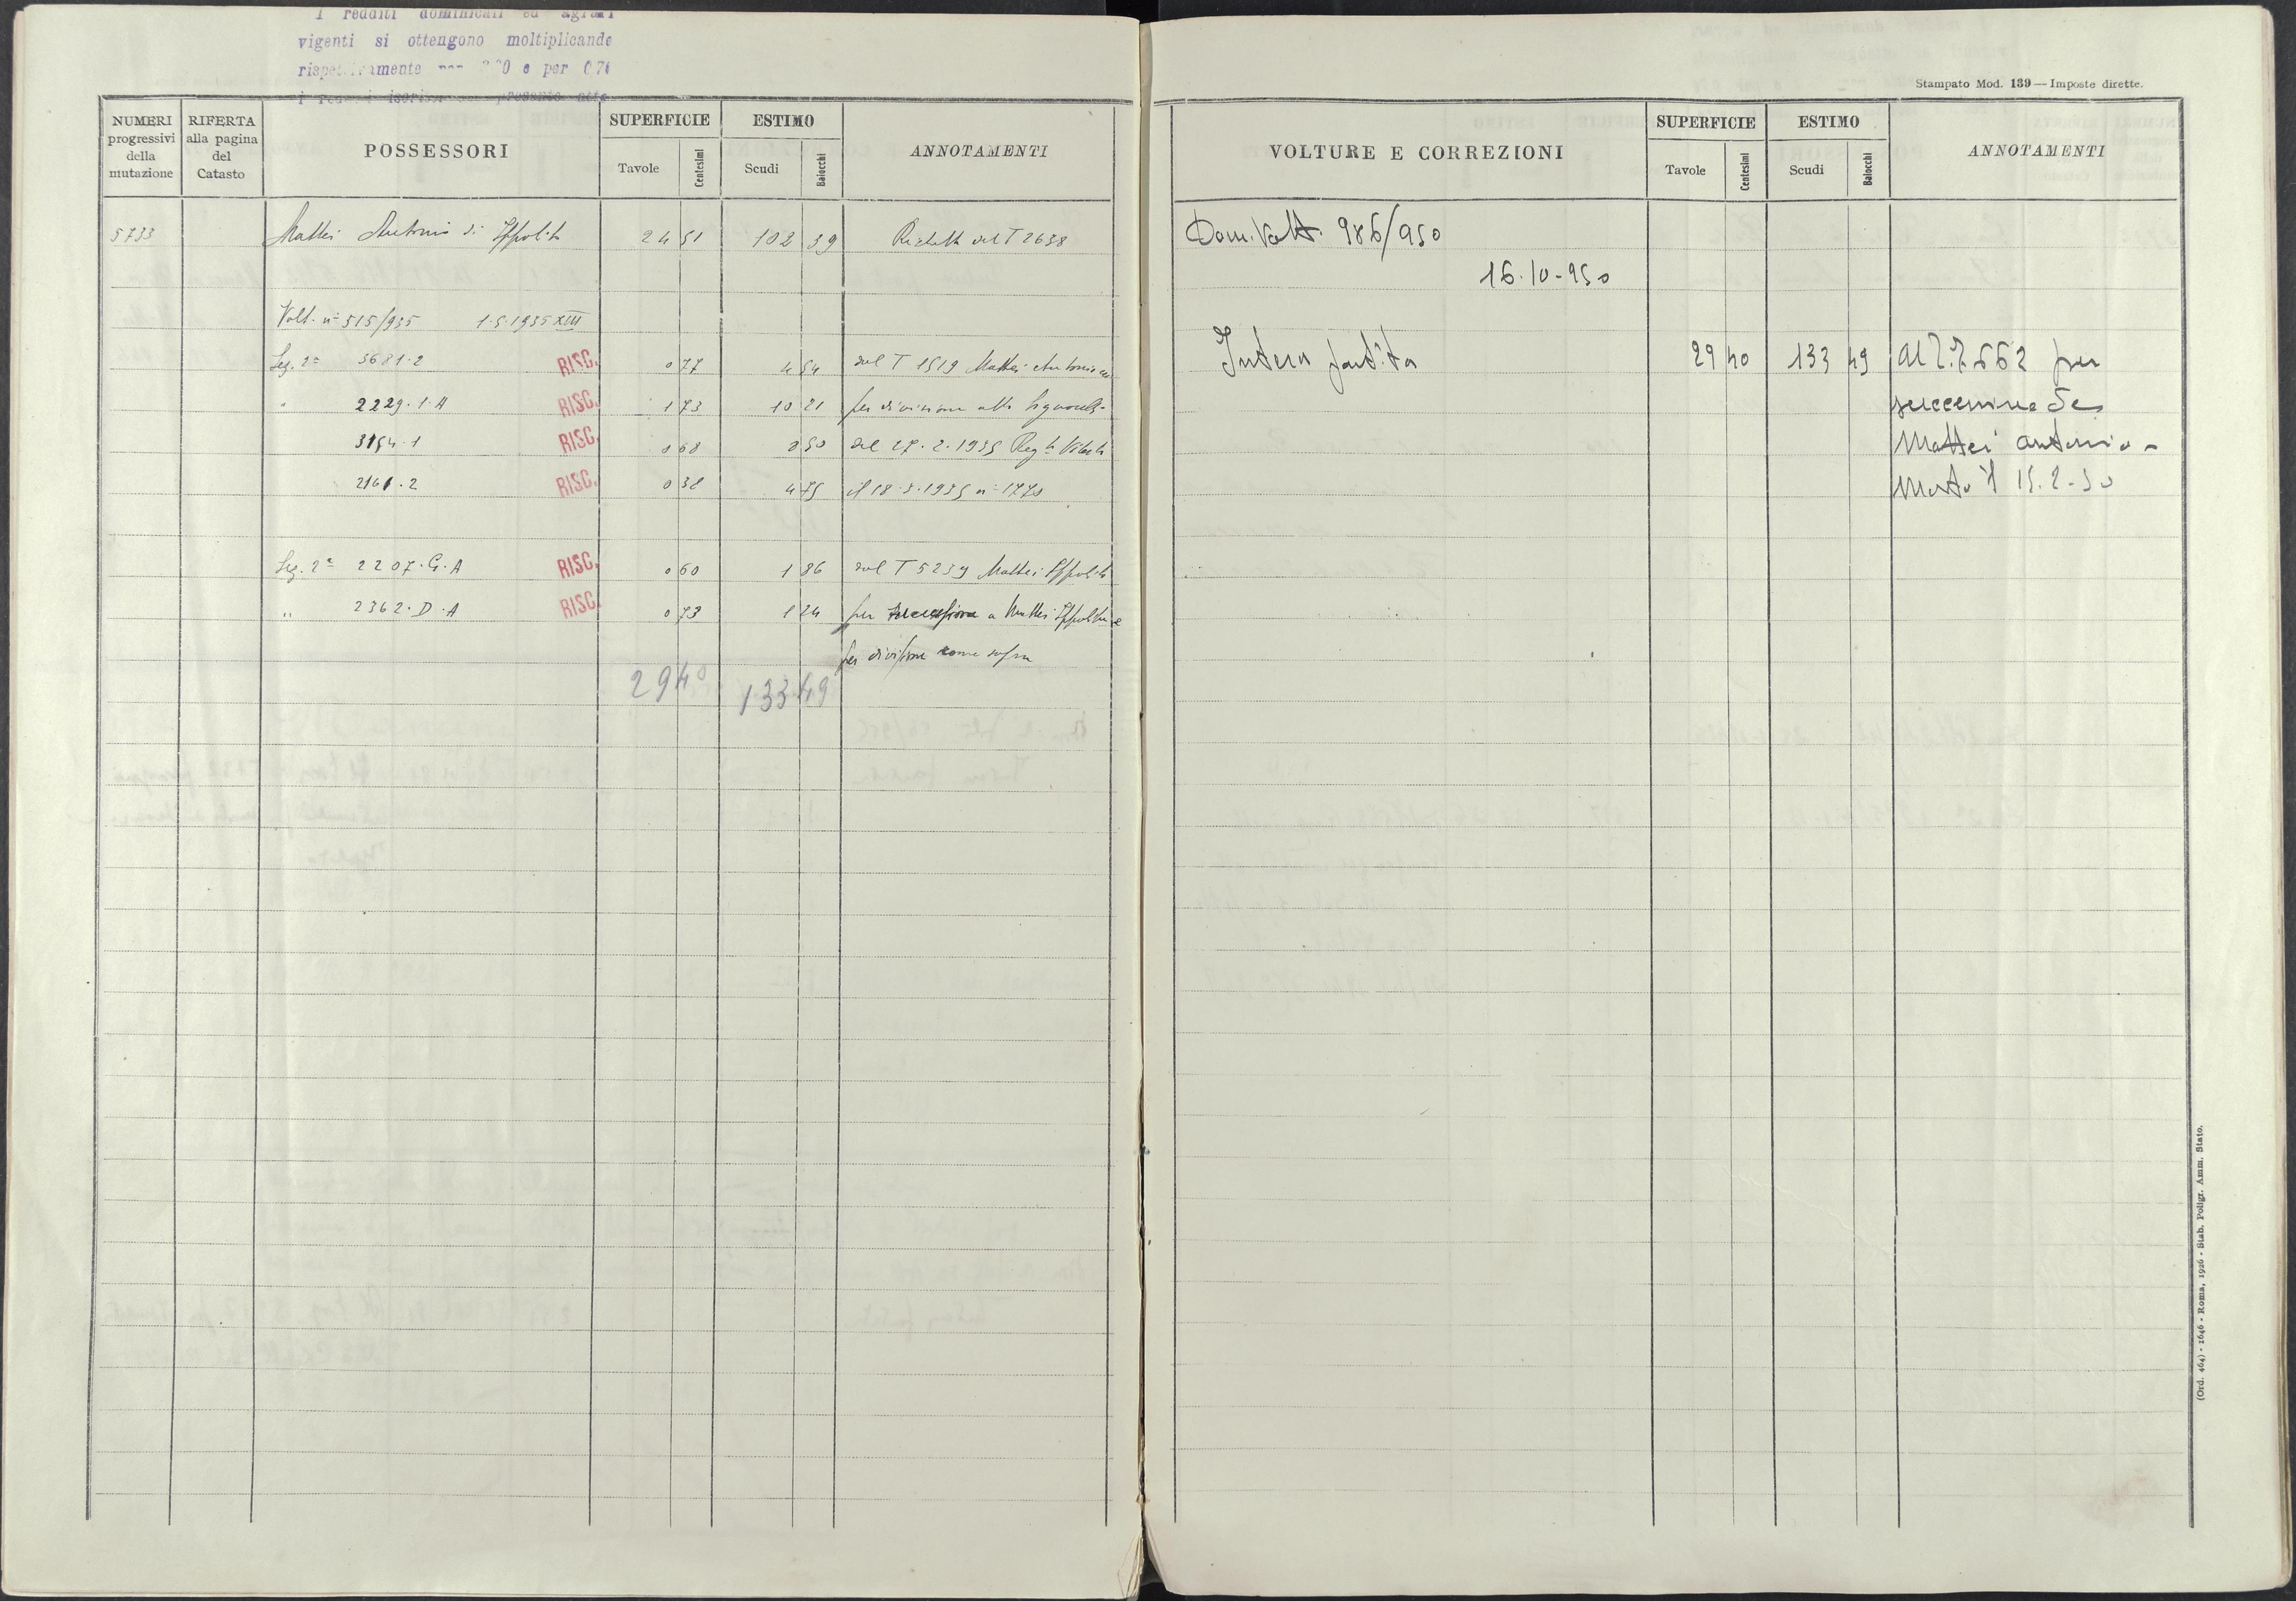 I redditi dominicali ed agrari
vigenti si ottengono moltiplicando
rispettivamente per 3 20 e per 0,70
NUMERI progressivi della mutazione
RIFERTA alla pagina del Catasto
POSSESSORI
SUPERFICIE
Tavole
Centesimi
ESTIMO
Scudi
Baiocchi
ANNOTAMENTI
5733 Mattei Antonio di Ippolito 24 51 102 39 del T 2638
Volt. n° 515/935 1.5.1935 XIII
Sez. 2ª 3681.2 RISC. 0 77 4 54 dal T 1519 Mattei Antonio
" 2229.1.A RISC. 1 73 10 21 per divisione
3154.1 RISC. 0 68 8 50 del 27.2.1935 Regto Viterbo
2161.2 RISC. 0 38 4 75 il 18.3.1935 n° 1770
Sez. 2ª 2207.G.A RISC. 0 60 1 86 dal T 5239 Mattei Ippolito
" 2362.D.A RISC. 0 73 1 24 per successione a Mattei Ippolito e
per divisione come sopra
29 40 133 49
Stampato Mod. 139 — Imposte dirette.
VOLTURE E CORREZIONI
SUPERFICIE
Tavole
Centesimi
ESTIMO
Scudi
Baiocchi
ANNOTAMENTI
Dom. Volt. 986/950
16.10-950
Intera partita 29 40 133 49 Al T. 7662 per
successione de
Mattei Antonio -
Morto il 15.2-50
(Ord. 464) - 1646 - Roma, 1926 - Stab. Poligr. Amm. Stato.